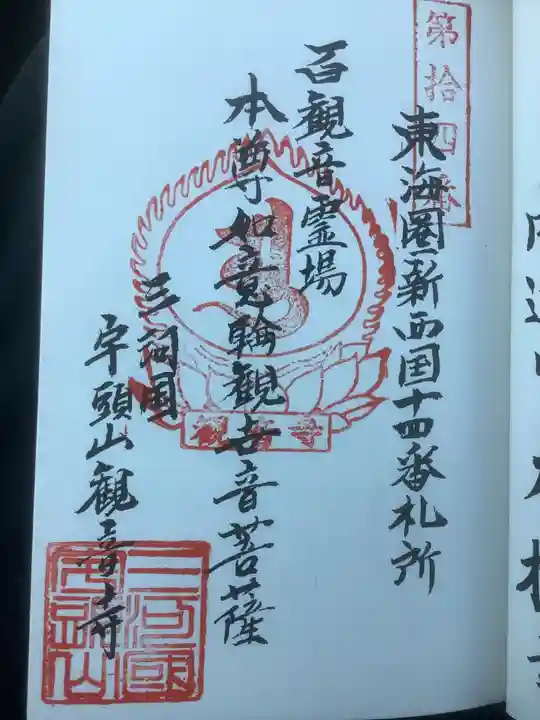 第拾四番
東海圏新西国十四番札所
百観音霊場
本尊如意輪観世音菩薩
三河国
宇頭山観音寺
観音寺
三河國宇頭山